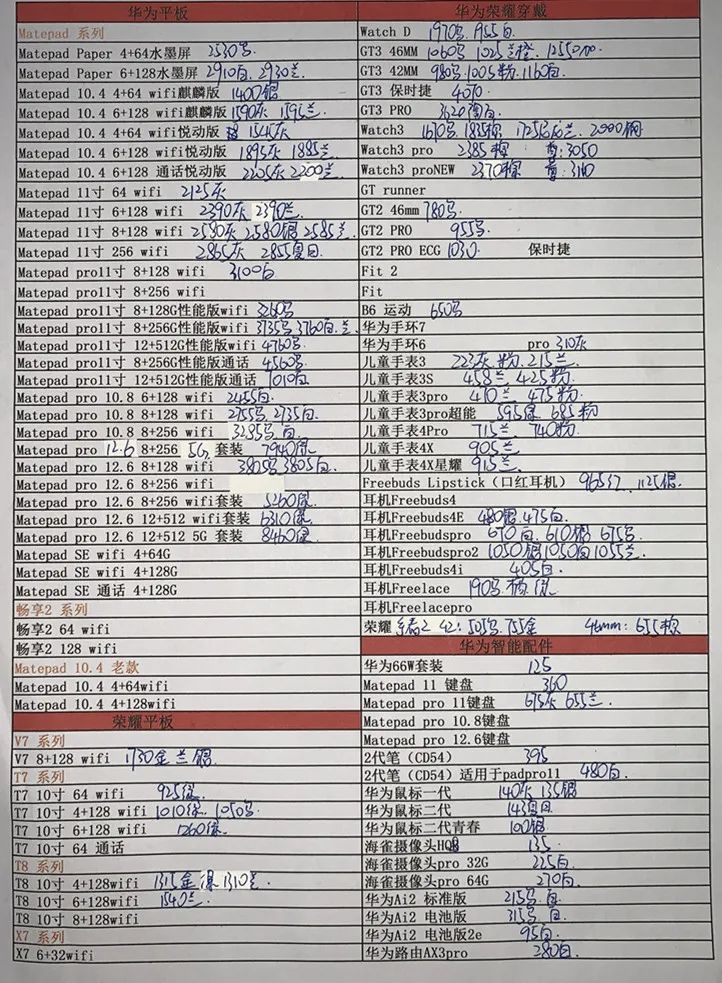 华为平板
Matepad 系列
Matepad Paper 4+64水墨屏 2530
Matepad Paper 6+128水墨屏 2910白 2930兰
Matepad 10.4 4+64 wifi麒麟版 1400银
Matepad 10.4 6+128 wifi麒麟版 1590灰 1595兰
Matepad 10.4 4+64 wifi悦动版 1545灰
Matepad 10.4 6+128 wifi悦动版 1895灰 1885兰
Matepad 10.4 6+128 通话悦动版 2205灰 2200兰
Matepad 11寸 64 wifi 2125灰
Matepad 11寸 6+128 wifi 2390灰 2390兰
Matepad 11寸 8+128 wifi 2580灰 2580银 2585兰
Matepad 11寸 256 wifi 2865灰 2855
Matepad pro11寸 8+128 wifi 3100白
Matepad pro11寸 8+256 wifi
Matepad pro11寸 8+128G性能版wifi 3260
Matepad pro11寸 8+256G性能版wifi 3735 3760白.兰
Matepad pro11寸 12+512G性能版wifi 4760
Matepad pro11寸 8+256G性能版通话 4560
Matepad pro11寸 12+512G性能版通话
Matepad pro 10.8 6+128 wifi 2455白
Matepad pro 10.8 8+128 wifi 2755 2735白
Matepad pro 10.8 8+256 wifi 3285 白
Matepad pro 12.6 8+256 5G 套装 7940绿
Matepad pro 12.6 8+128 wifi 3805 3805白
Matepad pro 12.6 8+256 wifi
Matepad pro 12.6 8+256 wifi套装 5260绿
Matepad pro 12.6 12+512 wifi套装 6310绿
Matepad pro 12.6 12+512 5G 套装 8460绿
Matepad SE wifi 4+64G
Matepad SE wifi 4+128G
Matepad SE 通话 4+128G
畅享2 系列
畅享2 64 wifi
畅享2 128 wifi
Matepad 10.4 老款
Matepad 10.4 4+64wifi
Matepad 10.4 4+128wifi
荣耀平板
V7 系列
V7 8+128 wifi 1730金 兰 银
T7 系列
T7 10寸 64 wifi 925绿
T7 10寸 4+128 wifi 1010绿 1050
T7 10寸 6+128 wifi 1260绿
T7 10寸 64 通话
T8 系列
T8 10寸 4+128wifi 1315金 绿 1310兰
T8 10寸 6+128wifi 1540兰
T8 10寸 8+128wifi
X7 系列
X7 6+32wifi
华为荣耀穿戴
Watch D 1970 955白
GT3 46MM 1060 1025兰橙 1255
GT3 42MM 980 1005粉 1160白
GT3 保时捷 4070
GT3 PRO 3620 白
Watch3 1670 1835棕 1725 2000钢
Watch3 pro 2385棕 3050
Watch3 proNEW 2370棕 3140
GT runner
GT2 46mm 780
GT2 PRO 955
GT2 PRO ECG 1030 保时捷
Fit 2
Fit
B6 运动 650
华为手环7
华为手环6 pro 310灰
儿童手表3 223灰.粉.215兰
儿童手表3S 458兰 425粉
儿童手表3pro 410兰 475粉
儿童手表3pro超能 595绿 685粉
儿童手表4Pro 715兰 740粉
儿童手表4X 905兰
儿童手表4X星耀 915兰
Freebuds Lipstick（口红耳机） 965红 1125银
耳机Freebuds4
耳机Freebuds4E 480银.475白
耳机Freebudspro 610白 610银 675
耳机Freebudspro2 1050银1050白1055兰
耳机Freebuds4i 405白
耳机Freelace 190
耳机Freelacepro
荣耀 2 42: 505 755金 46mm: 655棕
华为智能配件
华为66W套装 125
Matepad 11 键盘 360
Matepad pro 11键盘 675灰 655兰
Matepad pro 10.8键盘
Matepad pro 12.6键盘
2代笔（CD54） 395
2代笔（CD54）适用于padpro11 480白
华为鼠标一代 140灰 135银
华为鼠标二代 143
华为鼠标二代青春 100银
海雀摄像头HQ8 135
海雀摄像头pro 32G 225白
海雀摄像头pro 64G 270白
华为Ai2 标准版 215 白
华为Ai2 电池版 315 白
华为Ai2 电池版2e 95白
华为路由AX3pro 280白